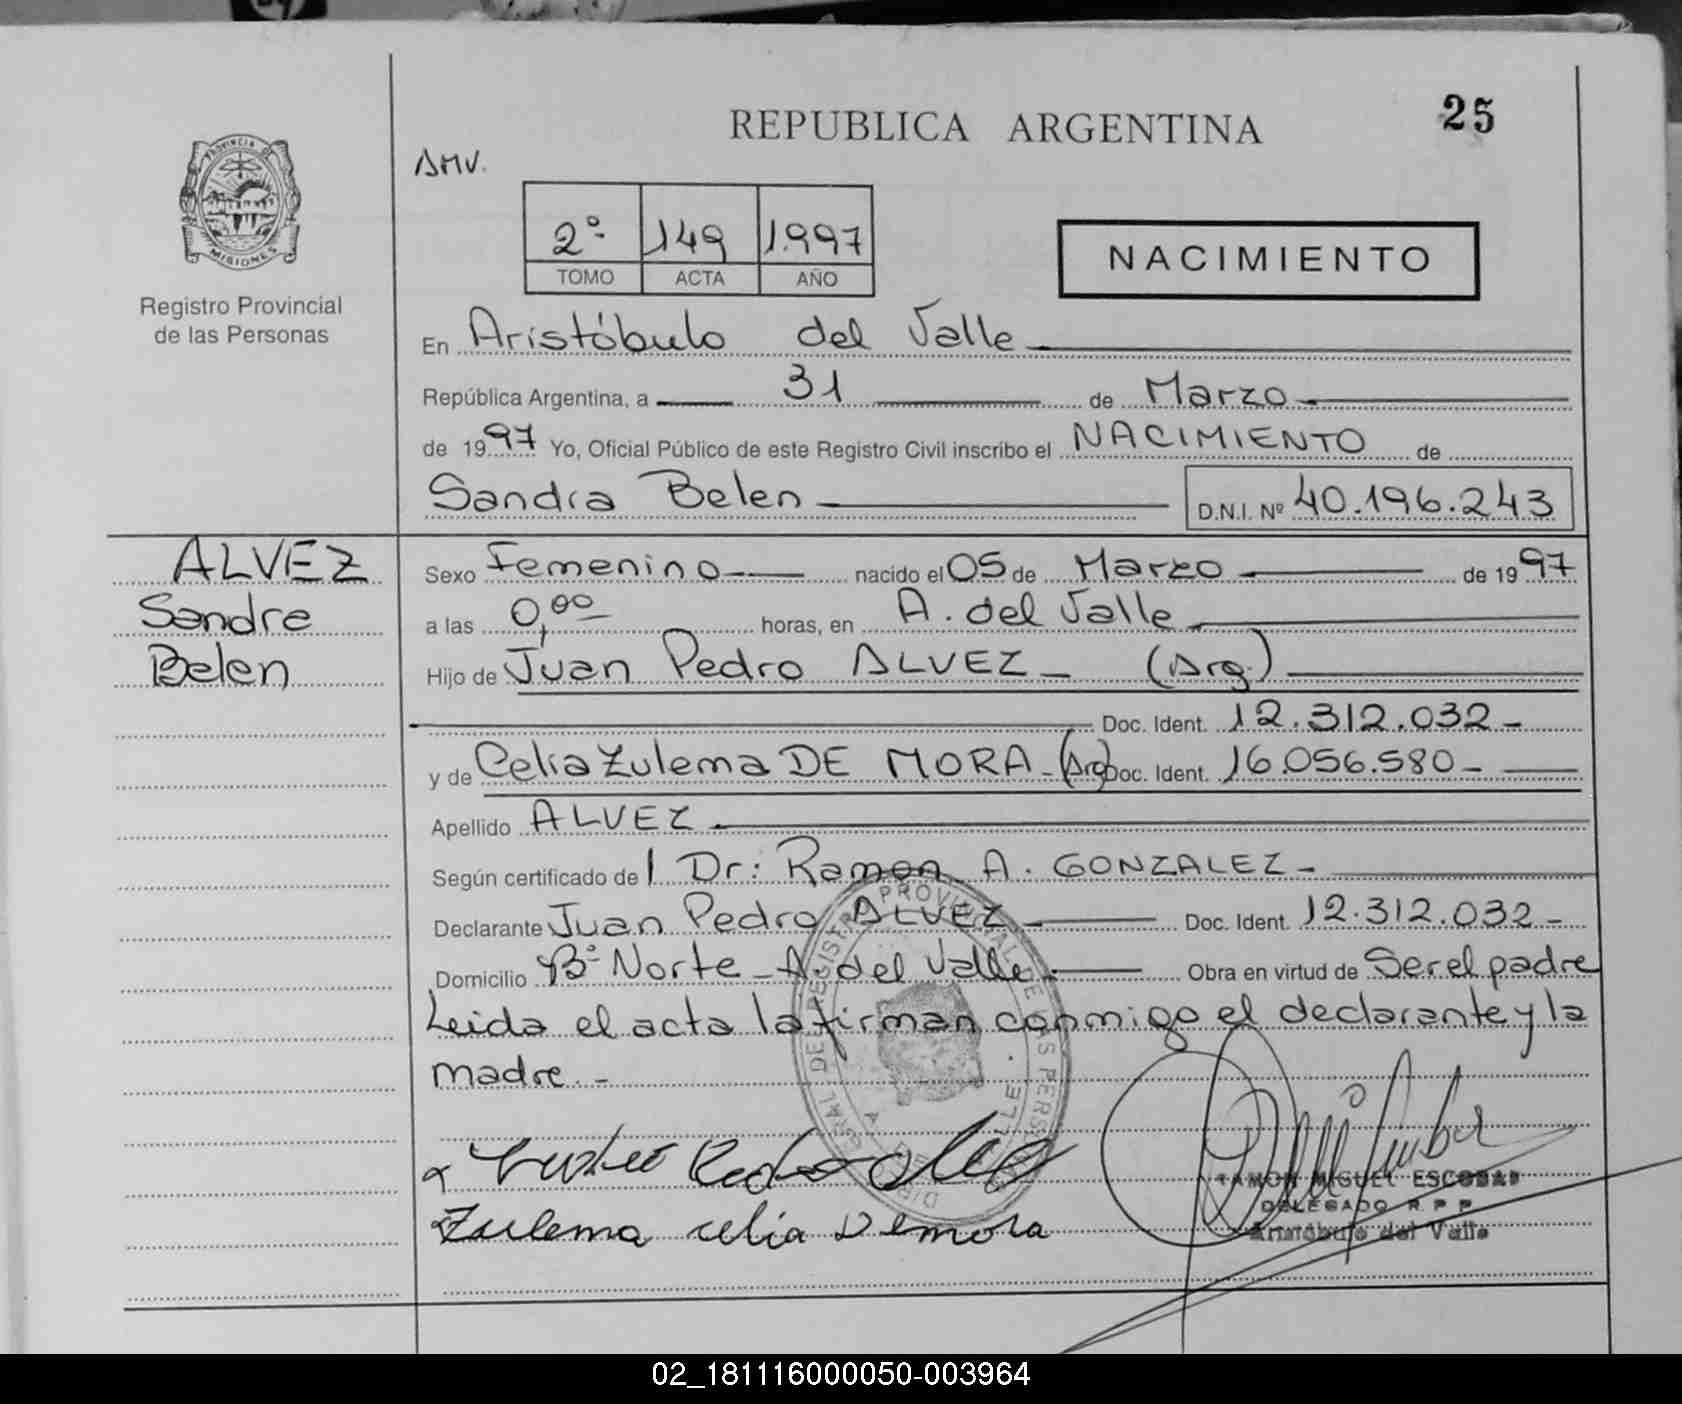 25
REPUBLICA ARGENTINA
PROVINCIA DE
MISIONES
Registro Provincial
de las Personas
AMV.
2º 149 1.997
TOMO ACTA AÑO
NACIMIENTO
En Aristóbulo del Valle
República Argentina, a 31 de Marzo
de 1997 Yo, Oficial Público de este Registro Civil inscribo el NACIMIENTO de
Sandra Belen D.N.I. Nº 40.196.243
ALVEZ
Sandra
Belen
Sexo Femenino nacido el 05 de Marzo de 1997
a las 0,00 horas, en A. del Valle
Hijo de Juan Pedro ALVEZ (Arg.)
Doc. Ident. 12.312.032
y de Celia Zulema DE MORA (Arg) Doc. Ident. 16.056.580
Apellido ALVEZ
Según certificado de l Dr: Ramon A. GONZALEZ
Declarante Juan Pedro ALVEZ Doc. Ident. 12.312.032
Domicilio Bº Norte - A. del Valle Obra en virtud de Ser el padre
Leida el acta la firman conmigo el declarante y la
madre. -
Zulema celia Demora
RAMON MIGUEL ESCOBAR
DELEGADO R. P. P.
Aristóbulo del Valle
02_181116000050-003964